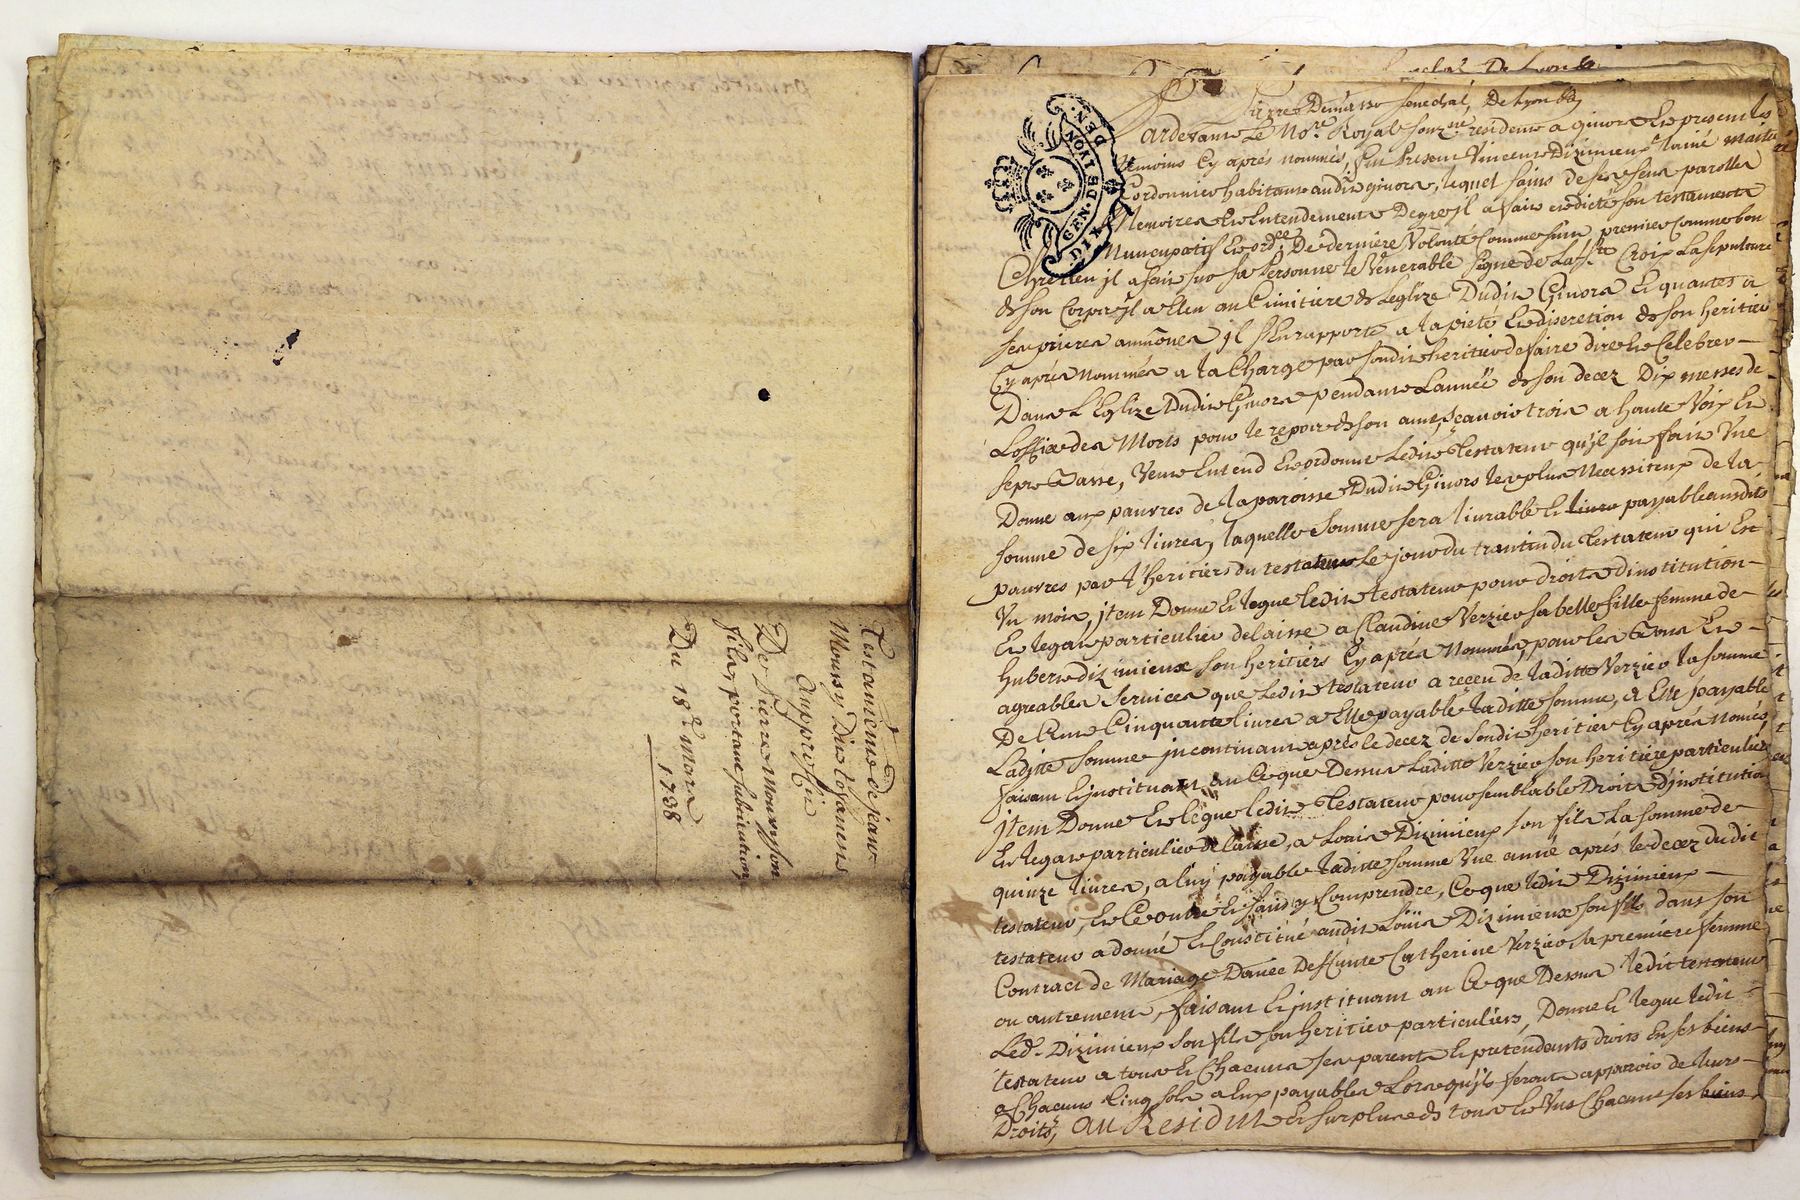 Testament de jean
Moussy Dit toyanens
Du pierre Moussy son
fils, portant substitution
Du 18e Mars
1738
GEN. D. LYON
DIX DEN.
Pardevant Le Nore Royal souzne resident a givors Et presents les
temoins Cy aprés nommés, fut Present Vincent Dizimieux laine maitre
Cordonnier habitant audit givors, lequel sains de ses sens parolles
Memoires Et Entendements De gré jl a fait et dicté son testament
Nuncupatif Et ordce De derniere Volonté Comme suit, premier Comme bon
Chretien jl a fait sur sa Personne le Venerable signe de La ste Croix La sepulture
de son Corps jl a Eleu au Cimitiere de Leglize Dudit Givors Et quantes a
ses prieres aumônes jl s'En rapporte a la pieté Et discretion de son heritier
Cy aprés Nommés a la Charge par sondit heritier de faire dire et Celebrer
Dans L'Eglize Dudit Givors pendant Lannée de son decez Dix messes de
Loffice des Morts pour le repos de son ame, sçavoir trois a haute Voix Et
sept Basse, Veut Entend Et ordonne Ledit Testateur qu'jl soit fait Une
Donne aux pauvres de la paroisse Dudit Givors les plus Necessiteux de la
somme de six livres, laquelle somme sera livrable Et livre payable ausdits
pauvres par l'heritiers du testateur Le jour du trantin du Testateur qui Est
Un mois, jtem Donne Et legue ledit testateur pour droits d'institution
Et legat particulier delaisse a Claudine Verzier sa belle fille femme de
hubert dizimieux son heritiers Cy aprés Nommés, pour les Bons Et
agreables services que Ledit testateur a reçeu de laditte Verzier la somme
De Cent Cinquante livres a Elle payable laditte somme, a Elle payable
Laditte somme jncontinant aprés le decez de sondit heritier Cy aprés només
faisant Et jnstituant En Ce que Dessus Laditte Verzier son heritiere particuliere
jtem Donne Et legue ledit Testateur pour semblable Droits d'jnstitution
Et legat particulier delaisse, a Louis Dizimieux son fils La somme de
quinze livres, a luy payable laditte somme Une anné aprés le decez dudit
testateur, Et Ce outre Et sans y Comprendre, Ce que ledit Dizimieux
testateur a donné Et Constitué audit Loüis Dizimieux son fils dans son
Contract de Mariage Davec Deffunte Catherine Verzier la premiere femme
ou autrement, faisant Et jnstituant en Ce que Dessus ledit testateur
Led. Dizimieux son fils son heritier particuliers, Donne Et legue ledit
testateur a tous Et Chacuns ses parents Et pretendants droits En ses biens
a Chacuns Cinq sols a Eux payables Lors qu'jls feront apparoir de leurs
Droits, Au Residut Et surplus de tous Et Uns Chacuns ses biens